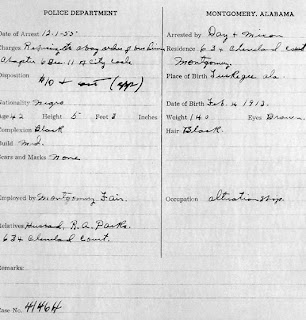 POLICE DEPARTMENT
MONTGOMERY, ALABAMA
Date of Arrest 12-1-55
Arrested by Day & Mixon
Charges Refusing the obey orders of bus driver
Residence 634 Cleveland Court
Chapter 6 Sec. 11 of City Code
Montgomery
Disposition $10 + cost (app)
Place of Birth Tuskegee ala.
Nationality Negro
Date of Birth Feb. 4 1913.
Age 42 Height 5 Feet 3 Inches
Weight 140 Eyes Brown
Complexion Black
Hair Black.
Build md.
Scars and Marks none
Employed by Montgomery Fair.
Occupation
Relatives R. A. Parks.
634 Cleveland Court.
Remarks:
Case No. 4146H